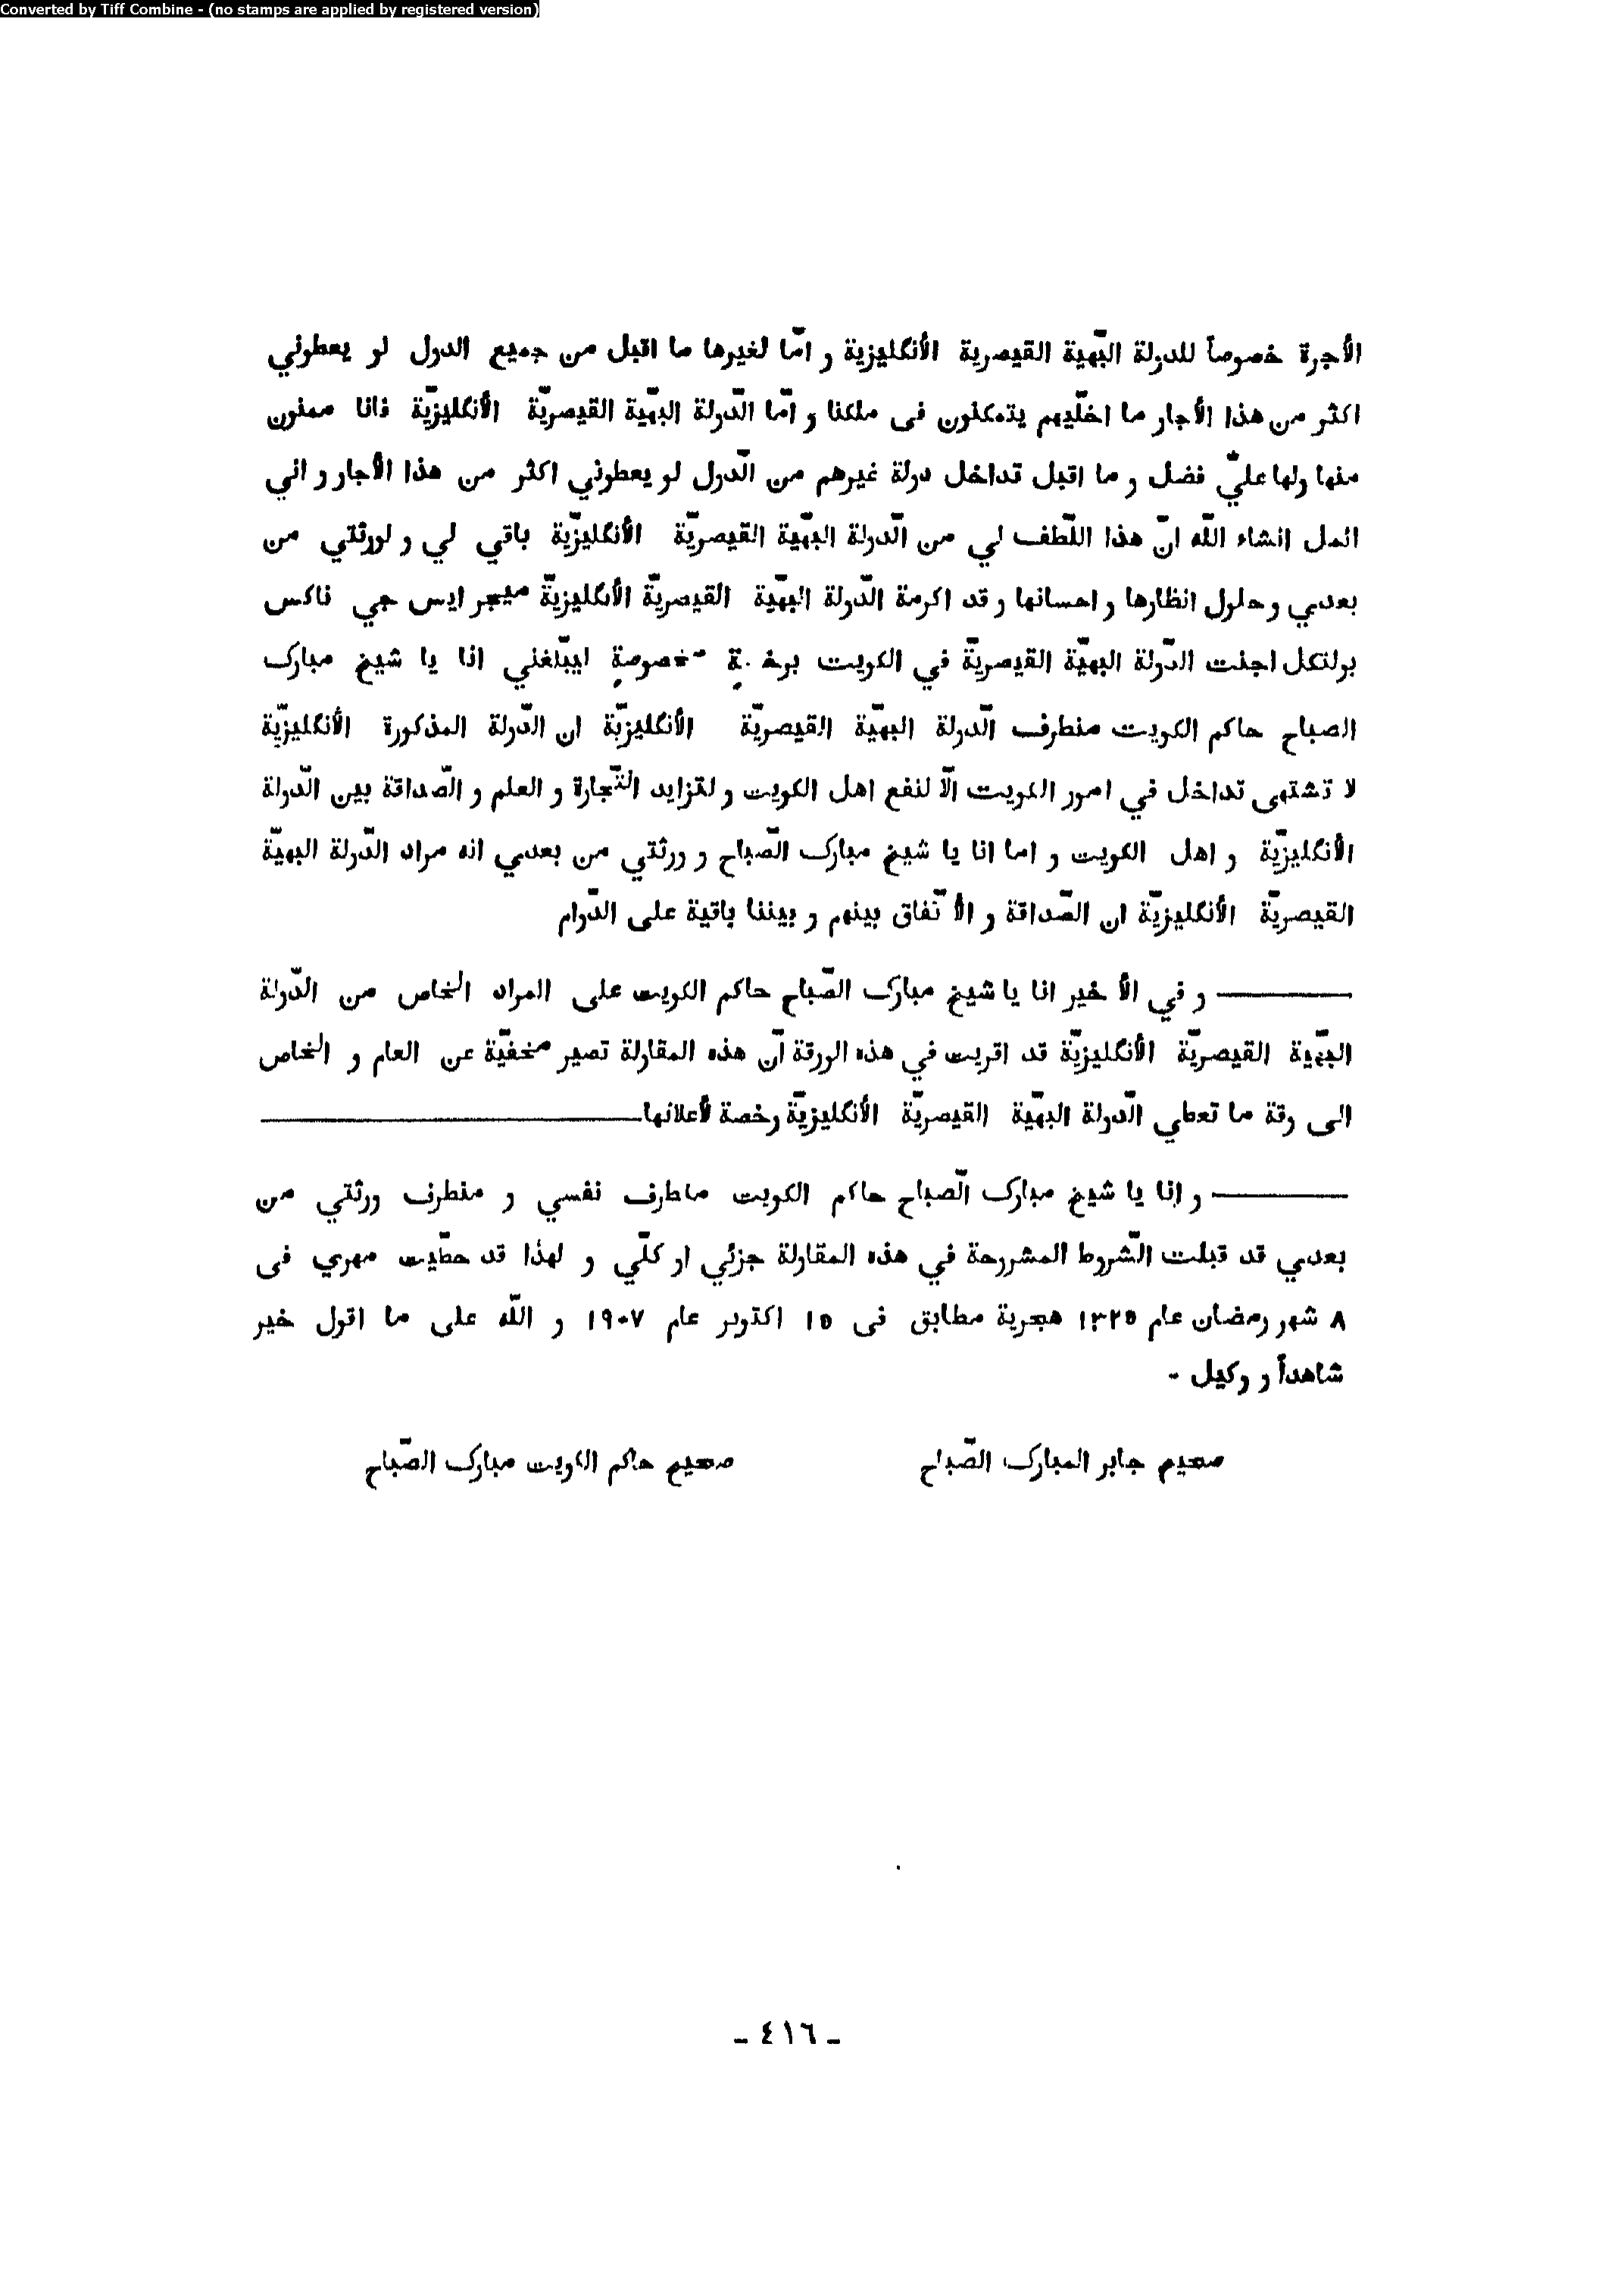 Converted by Tiff Combine - (no stamps are applied by registered version)
الأجرة خصوصاً للدولة البّهية القيصرية الأنكليزية و امّا لغيرها ما اقبل من جميع الدول لو يعطوني
اكثر من هذا الأجار ما اخلّيهم يتمكنون فى ملكنا و امّا الدّولة البهّية القيصريّة الأنكليزيّة فانا ممنون
منها ولها عليّ فضل و ما اقبل تداخل دولة غيرهم من الدّول لو يعطوني اكثر من هذا الأجار و اني
انشاء الله انّ هذا اللّطف لي من الدّولة البهّية القيصريّة الأنكليزيّة باقي لي و لورثتي من
بعدي و حلول انظارها و احسانها و قد اكرمة الدّولة البهّية القيصريّة الأنكليزيّة ميجر ايس جي ناكس
بولتكل اجنت الدّولة البهيّة القيصريّة في الكويت مخصوصةٍ ليبلّغني انا يا شيخ مبارك
الصباح حاكم الكويت منطرف الدّولة البهيّة القيصريّة الأنكليزيّة ان الدّولة المذكورة الأنكليزيّة
لا تشتهى تداخل في امور الكويت الّا لنفع اهل الكويت و لتزايد التّجارة و العلم و الصّداقة بين الدّولة
الأنكليزيّة و اهل الكويت و اما انا يا شيخ مبارك الصّباح و ورثتي من بعدي انه مراد الدّولة البهيّة
القيصريّة الأنكليزيّة ان الصّداقة و الأ تّفاق بينهم و بيننا باقية على الدّوام
و في الأ خير انا يا شيخ مبارك الصّباح حاكم الكويت على المراد الخاص من الدّولة
البهّية القيصريّة الأنكليزيّة قد اقريت في هذه الورقة انّ هذه المقاولة تصير مخفيّة عن العام و الخاص
الى وقة ما تعطي الدّولة البهّية القيصريّة الأنكليزيّة رخصة لأعلانها
و انا يا شيخ مبارك الصّباح حاكم الكويت ماطرف نفسي و منطرف ورثتي من
بعدي قد قبلت الشّروط المشروحة في هذه المقاولة جزئي او كلّي و لهذا قد حطّيت مهري فى
٨ شهر رمضان عام ١٣٢٥ هجرية مطابق فى ١٥ اكتوبر عام ١٩٠٧ و اللّه على ما اقول خير
شاهداً و وكيل -
صحيح جابر المبارك الصّباح
صحيح حاكم الكويت مبارك الصّباح
- ٤١٦ -